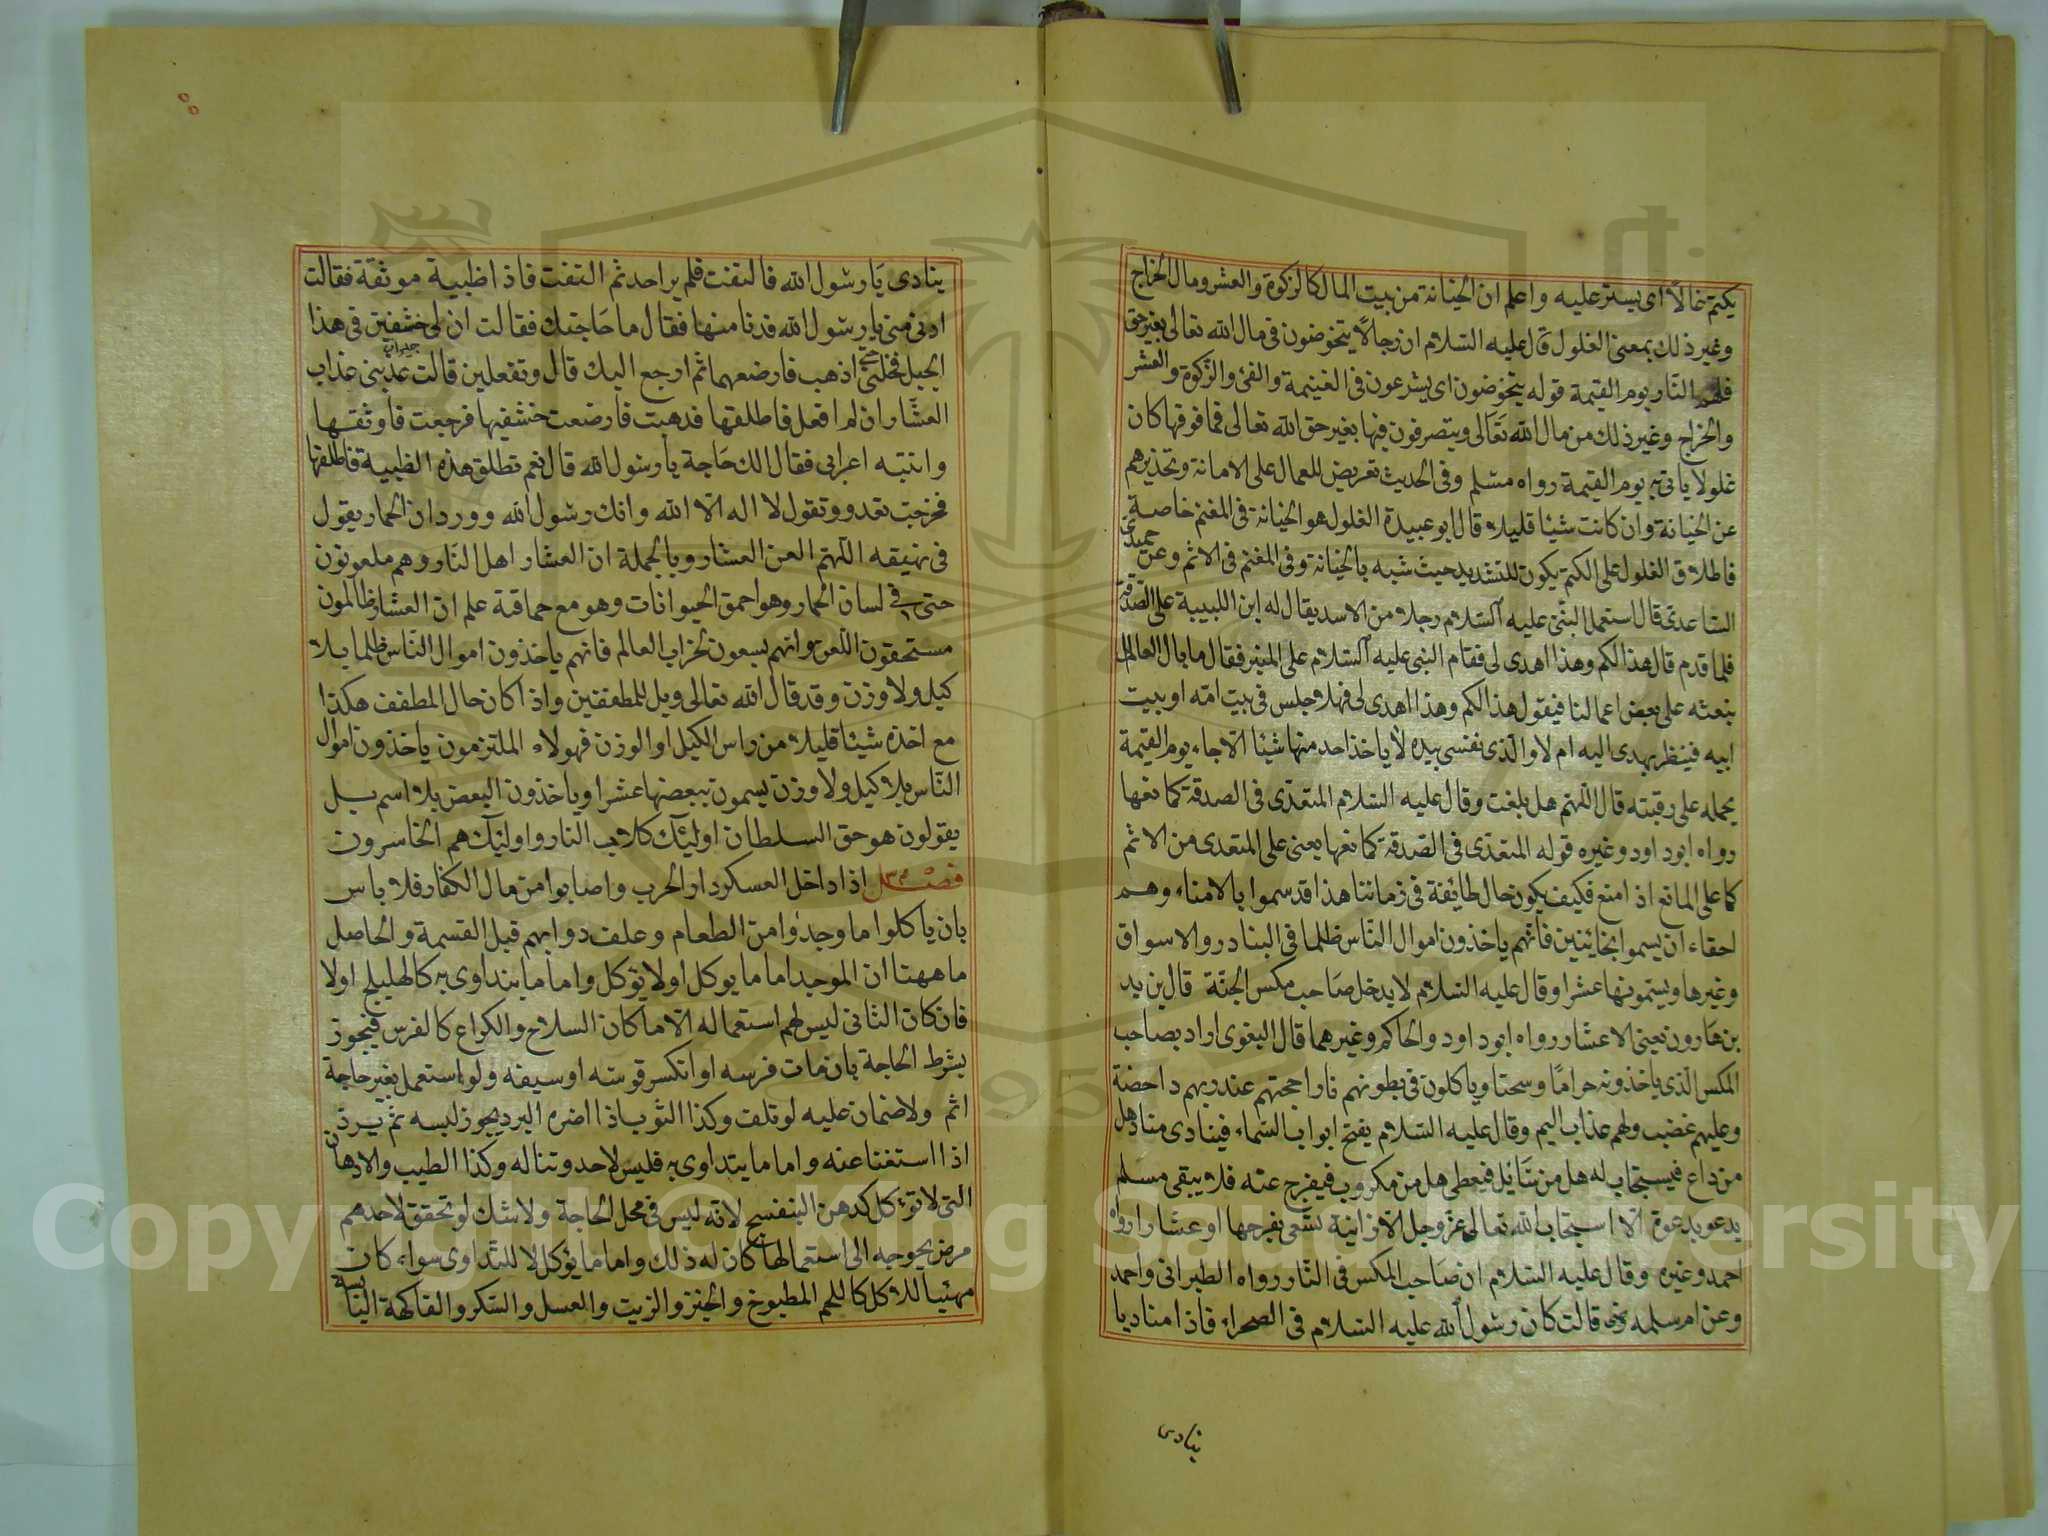 يكتم غالا اى يستر عليه واعلم ان الخيانة من بيت المال كالزكوة والعشر ومال الخراج
وغير ذلك بمعنى الغلول قال عليه السلام ان رجالا يتخوضون فى مال الله تعالى بغير حق
فلهم النار يوم القيمة قوله يتخوضون اى يشرعون فى الغنيمة والفئ والزكوة والعشر
والخراج وغير ذلك من مال الله تعالى ويتصرفون فيها بغير حق الله تعالى فما فوقها كان
غلولا ياتى به يوم القيمة رواه مسلم وفى الحديث تعريض للعمال على الامانة وتحذيرهم
عن الخيانة وان كانت شيئا قليلا قال ابو عبيدة الغلول هو الخيانة فى المغنم خاصة
فاطلاق الغلول على الكتم يكون للتشديد حيث شبه بالخيانة وفى المغنم فى الاثم وعن حميدى
الساعدى قال استعمل النبى عليه السلام رجلا من الاسد يقال له ابن اللبيبة على الصدقة
فلما قدم قال هذا لكم وهذا اهدى لى فقام النبى عليه السلام على المنبر فقال ما بال العامل
نبعثه على بعض اعمالنا فيقول هذا لكم وهذا اهدى لى فهلا جلس فى بيت امه او بيت
ابيه فينظر يهدى اليه ام لا والذى نفسى بيده لا ياخذ احد منها شيئا الا جاء يوم القيمة
يحمله على رقبته قال اللهم هل بلغت وقال عليه السلام المتعدى فى الصدقة كما نعها
رواه ابو داود وغيره قوله المتعدى فى الصدقة كما نعها يعنى على المتعدى من الاثم
كما على المانع اذ امنع فكيف يكون حال طائفة فى زماننا هذا قد سموا بالامناء وهم
احقاء ان يسموا بخائنين فانهم ياخذون اموال الناس ظلما فى البنادر والاسواق
وغيرها ويسمونها عشرا وقال عليه السلام لا يدخل صاحب مكس الجنة قال يزيد
بن هارون يعنى الاعشار رواه ابو داود والحاكم وغيرهما قال البغوى اراد بصاحب
المكس الذى ياخذونه حراما وسحتا وياكلون فى بطونهم نارا حجتهم عند ربهم داحضة
وعليهم غضب ولهم عذاب اليم وقال عليه السلام يفتح ابواب السماء فينادى مناد هل
من داع فيستجاب له هل من سائل فيعطى هل من مكروب فيفرج عنه فلا يبقى مسلم
يدعو بدعوة الا استجاب الله تعالى عز وجل الا زانية تسعى بفرجها او عشارا رواه
احمد وغيره وقال عليه السلام ان صاحب المكس فى النار رواه الطبرانى واحمد
وعن ام سلمه قالت كان رسول الله عليه السلام فى الصحراء فاذا مناديا
ينادى
ينادى يا رسول الله فالتفت فلم ير احد ثم التفت فاذا ظبية موثقة فقالت
ادن منى يا رسول الله فدنا منها فقال ما حاجتك فقالت ان لى خشفين فى هذا
الجبل فخلنى حتى اذهب فارضعهما ثم ارجع اليك قال وتفعلين قالت عذبنى عذاب
العشار ان لم افعل فاطلقها فذهبت فارضعت خشفيها فرجعت فاوثقها
وانتبه اعرابى فقال الك حاجة يا رسول الله قال نعم تطلق هذه الظبية فاطلقها
فخرجت تعدو وتقول لا اله الا الله وانك رسول الله وورد ان الحمار يقول
فى نهيقه اللهم العن العشار وبالجملة ان العشار اهل النار وهم ملعونون
حتى فى لسان الحمار وهو احمق الحيوانات وهو مع حماقة علم ان العشار ظالمون
مستحقون اللعن وانهم يسعون لخراب العالم فانهم ياخذون اموال الناس ظلما بلا
كيل ولا وزن وقد قال الله تعالى ويل للمطففين واذا كان حال المطفف هكذا
مع اخذه شيئا قليلا من راس الكيل او الوزن فهولاء الملتزمون ياخذون اموال
الناس بلا كيل ولا وزن يسمون ببعضها عشرا وياخذون البعض بلا اسم بل
يقولون هو حق السلطان اولئك كلاب النار واولئك هم الخاسرون
فصل ٣ اذا داخل العسكر دار الحرب واصابوا من مال الكفار فلا باس
بان ياكلوا ما وجدوا من الطعام وعلف دوابهم قبل القسمة والحاصل
ما ههنا ان الموجد اما ما يوكل اولا يؤكل واما ما يتداوى به كالهليلج اولا
فان كان الثانى ليس لهم استعماله الا ما كان السلاح والكراع كالفرس فيجوز
بشرط الحاجة بان مات فرسه او انكسر قوسه او سيفه ولو استعمل بغير حاجة
اثم ولا ضمان عليه لو تلف وكذا الثوب اذا اضره البرد يجوز لبسه ثم يرد
اذا استغنا عنه واما ما يتداوى به فليس لاحد وتناله وكذا الطيب والادهان
التى لا تؤكل كدهن البنفسج لانه ليس فى محل الحاجة ولا شك لو تحقق لاحدهم
مرض يحوجه الى استعمالها كان له ذلك واما ما يؤكل لا للتداوى سواء كان
مهئيا للاكل كاللحم المطبوخ والخبز والزيت والعسل والسكر والفاكهة اليابسة
Copyright © King Saud University